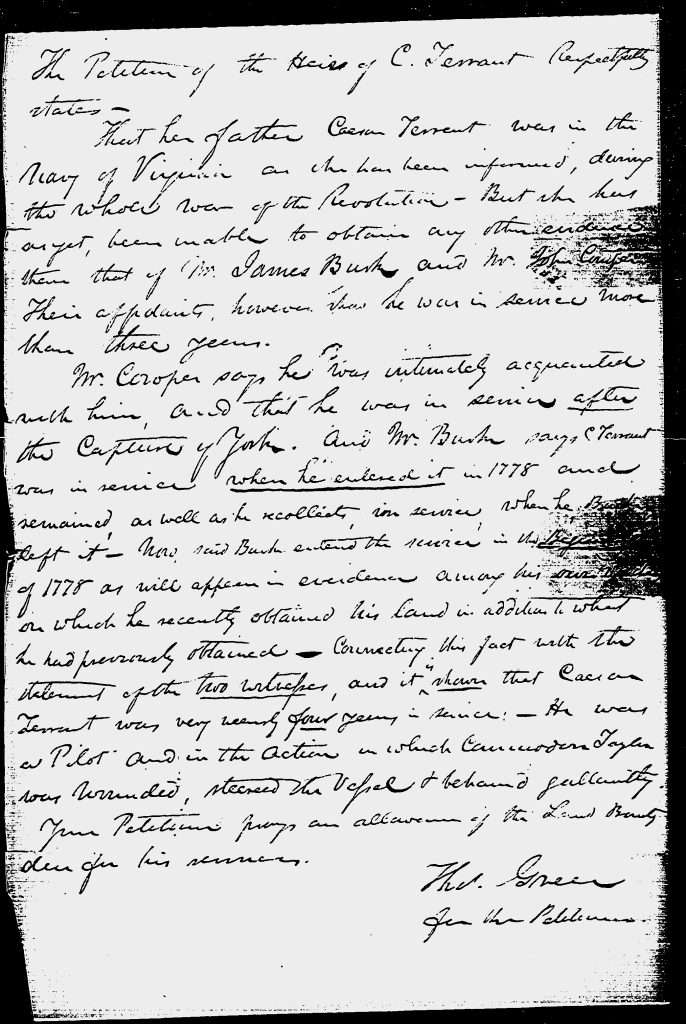 The Petition of the Heirs of C. Terrant Respectfully
states –
That her father Caesar Terrant was in the
Navy of Virginia as she has been informed, during
the whole war of the Revolution – But she has
as yet, been unable to obtain any other evidence
than that of Mr. James Burk and Mr. John Cowper
Their affidavits, however show he was in service more
than three years.
Mr. Cowper says he was intimately acquainted
with him, and that he was in service after
the Capture of York. And Mr. Burk says C Terrant
was in service when he entered it in 1778 and
remained, as well as he recollects, in service, when he, Burk
left it – Now, said Burk entered the service in the
of 1778 as will appear in evidence among his own
on which he recently obtained his land in addition to what
he had previously obtained – Connecting this fact with the
statement of the two witnesses, and it is shown that Caesar
Terrant was very nearly four years in service: – He was
a Pilot and in the action in which Commodore Taylor
was wounded, steered the Vessel & behaved gallantly.
Your Petitioner prays an allowance of the Land Bounty
due for his services.
Thos. Green
for the Petitioner.